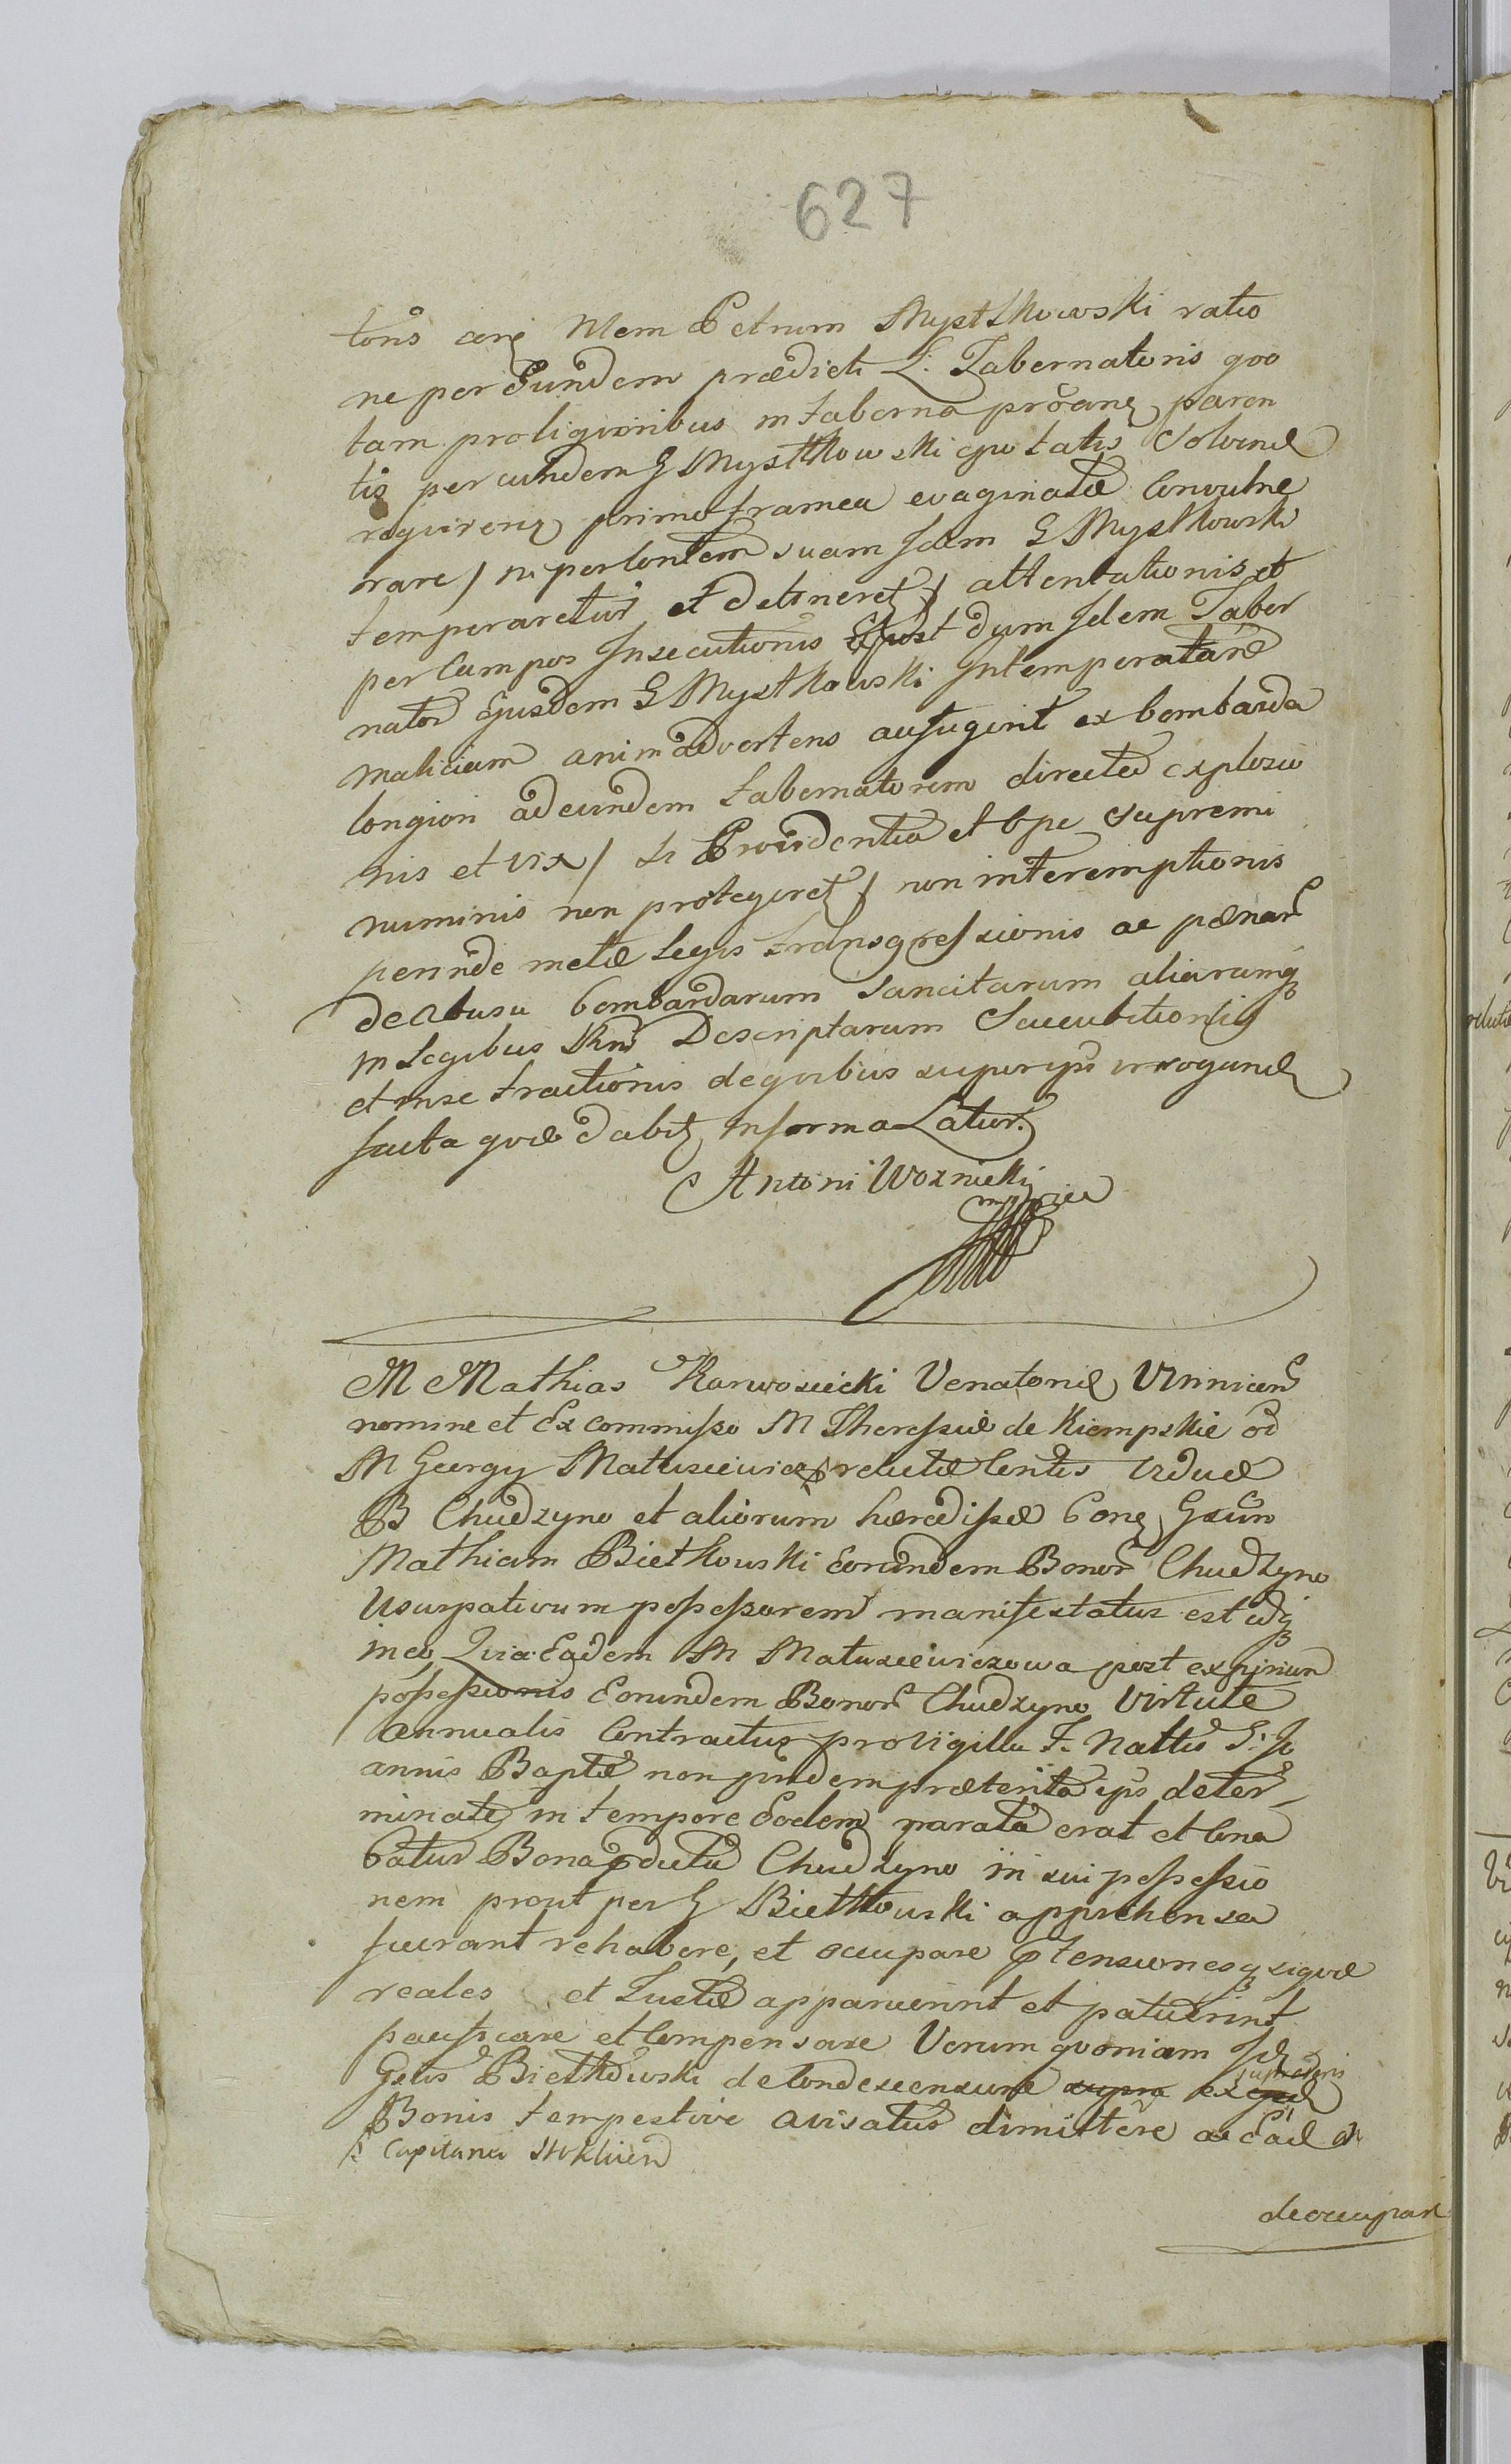 627
toris Mem Petrum Mystkowski ratio
ne per Eundem prædicti L: Tabernatoris qvo
tam pro liqvoribus in taberna paren
tis per eundem G Mystkowski epotatis Solvend
reqvirens primo framea evaginata Convulne
rare / ni per Contem suam Idem G Mystkowski
temperaretur et detineret / attentationis et
per Campos Insecutionis Et post dum Idem Taber
nator Ejusdem G Mystkowski Intemperatam
maliciam animadvertens aufugerit ex bombarda
longiori ad eundem tabernatorem directa explosio
nis et vix / si Providentia et Ope Supremi
numinis non protegeret / non interemptionis
perinde metæ Legis transgressionis ac pænar
de Abusu bombardarum Sancitarum aliarumq
in Legibus Rni Descriptarum Succubitionis
et in se tractionis de qvibus superips irrogand
facta qvæ dabit Informa Latur.
Antoni Woznicki
mp
M Mathias Karwosiecki Venatorid Winnicen
nomine et Ex commisso M Theressiæ de Kiempskie od
M Georgy Matusiewicz relictæ Contis Viduæ
B Chudzyno et aliorum hæredissæ Cong Gsum
Mathiam Bietkowski Eorundem Bonor Chudzyno
Usurpativum possessorem manifestatus est idq
in eo Qvia Eadem M Matusiewiczowa post expirium
possessionis Eorundem Bonor Chudzyno Virtute
Annualis Contractus pro Vigilia F. Nattis S: Jo
annis Baptæ non pridem præterita ips deter
minati in tempore Eodem parata erat et Cona
batur Bona pdicta Chudzyno in sui possessio
nem prout per G Bietkowski apprehensa
fuerant rehabere, et occupare ptensionesq siqvæ
reales et Iustæ apparuerint et patuerint
pacificare et Compensare Verum qvoniam Id
Gsus Bietkowski de Condescensione supra ex supradictis
Bonis tempestive avisatus dimittere ac Ead
Capitanei Stokliien
deoccupare